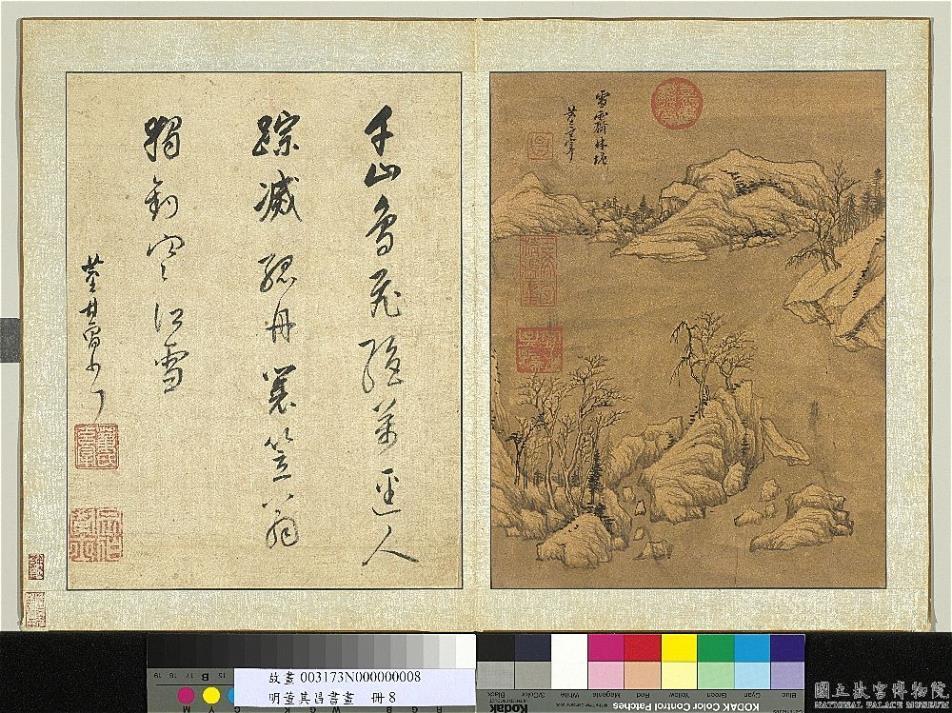 雪霽林塘
玄宰
千山鳥飛絕萬逕人
踪滅孤舟簑笠翁
獨釣寒江雪
董其昌書
故畫 003173N000000008
明董其昌書畫 冊 8
Black
3/Color
White
Magenta
Red
Yellow
Green
Cyan
Blue
Kodak
KODAK Color Control Patches
國立故宮博物院
NATIONAL PALACE MUSEUM